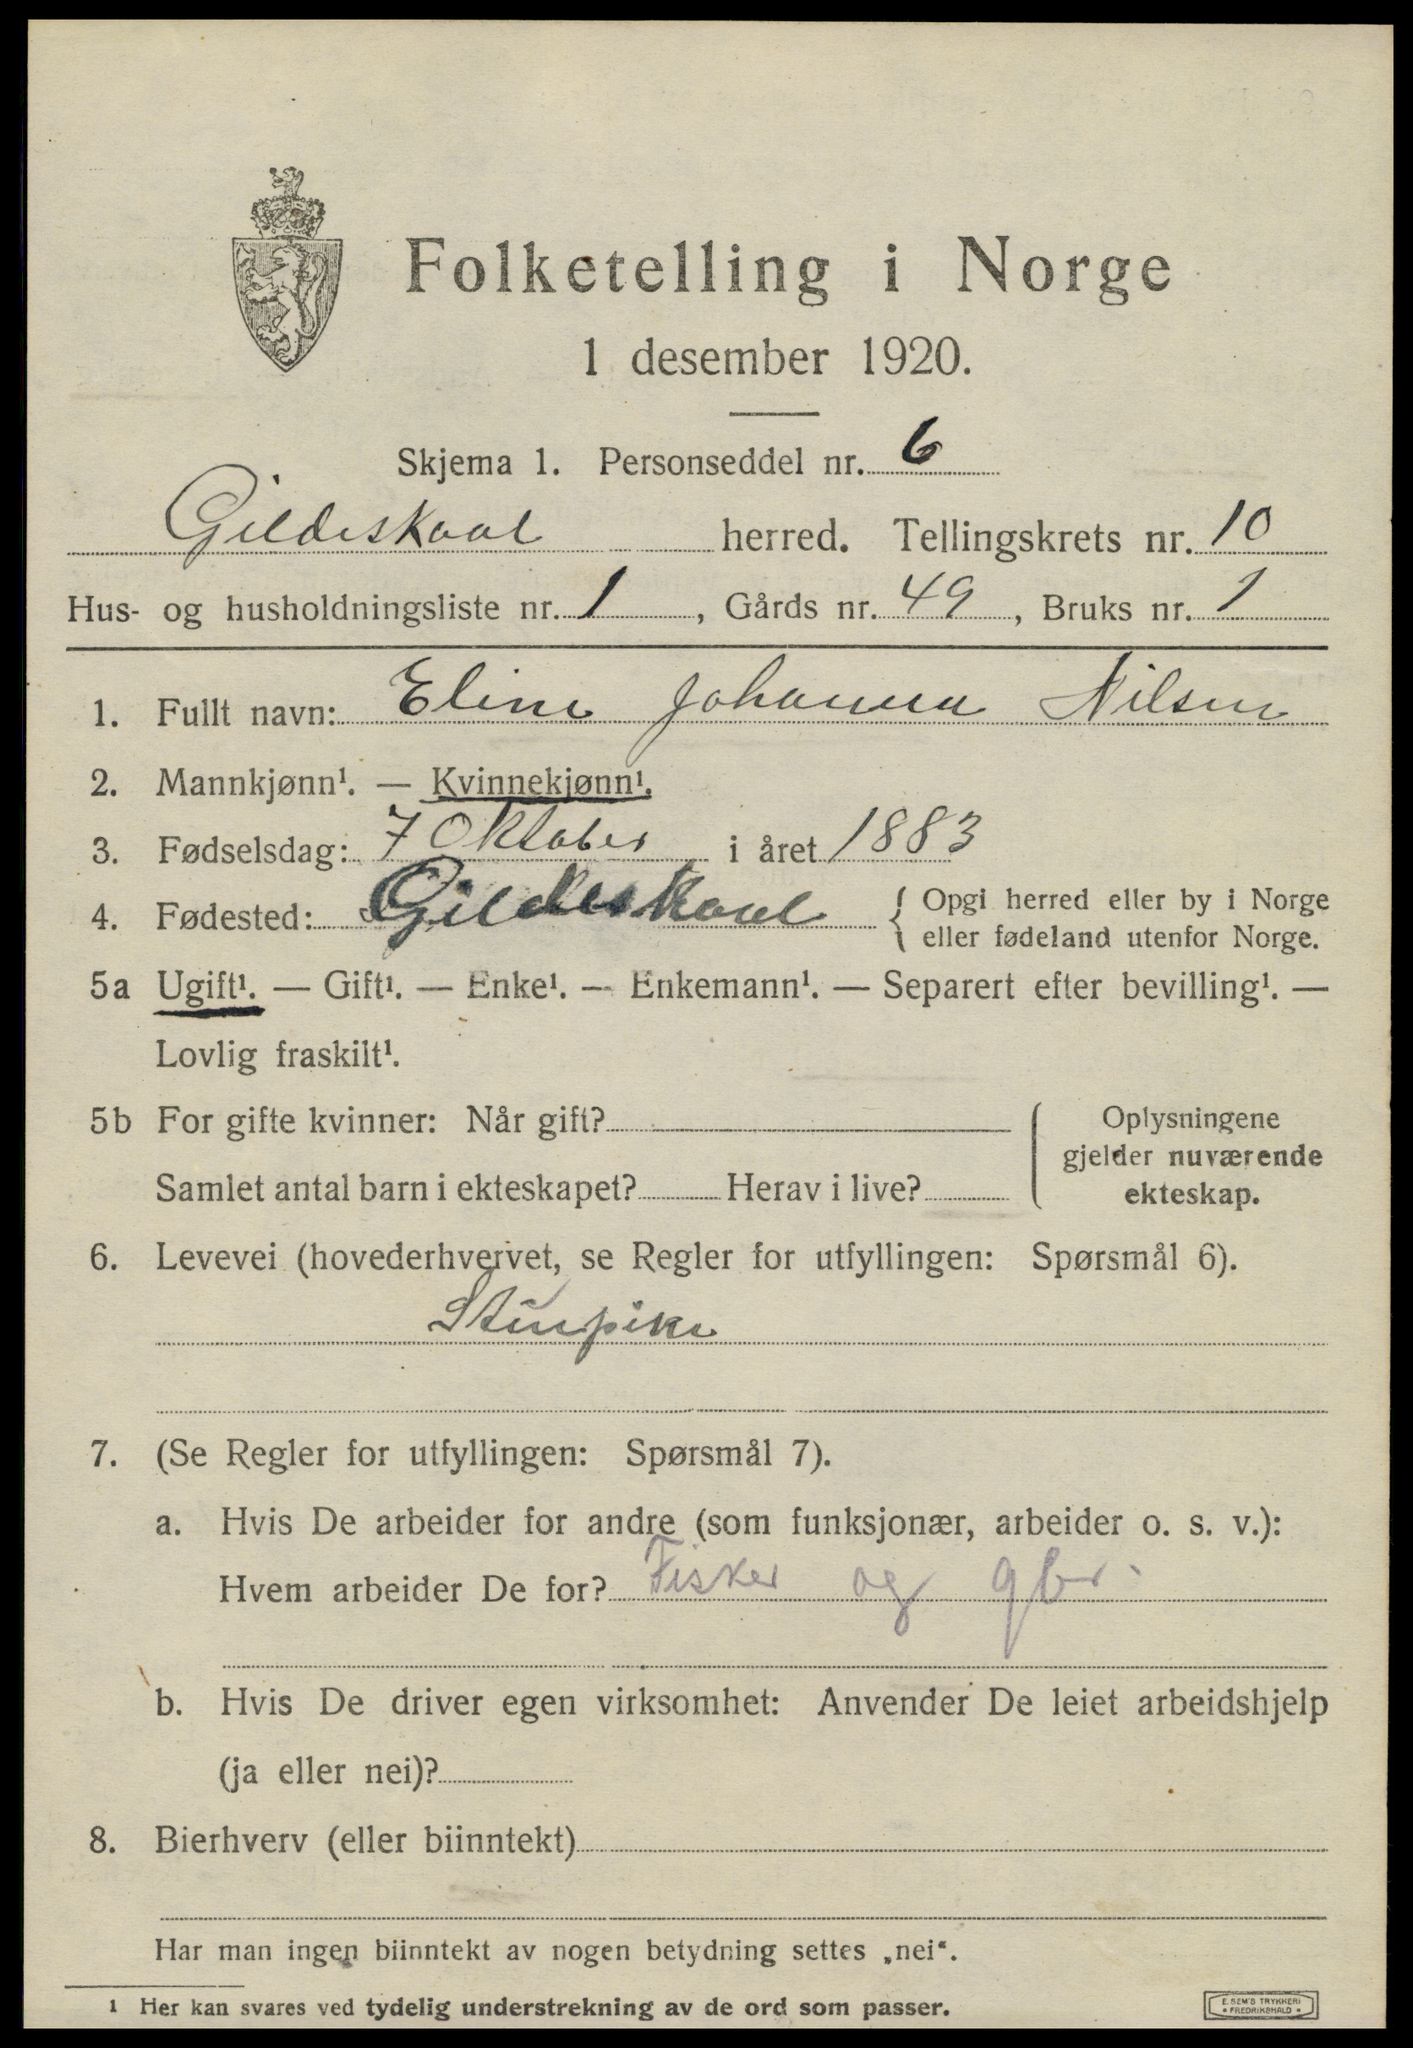 Folketelling i Norge
1 desember 1920.
Skjema 1. Personseddel nr. 6
Gildeskaal herred. Tellingskrets nr. 10
Hus- og husholdningsliste nr. 1, Gårds nr. 49, Bruks nr. 1
1. Fullt navn: Eline Johanna Nilsen
2. Mannkjønn¹. — Kvinnekjønn¹.
3. Fødselsdag: 7 Oktober i året 1883
4. Fødested: Gildeskaal { Opgi herred eller by i Norge
eller fødeland utenfor Norge.
5a Ugift¹. — Gift¹. — Enke¹. — Enkemann¹. — Separert efter bevilling¹. —
Lovlig fraskilt¹.
5b For gifte kvinner: Når gift?
Samlet antal barn i ekteskapet? Herav i live?
Oplysningene
gjelder nuværende
ekteskap.
6. Levevei (hovederhvervet, se Regler for utfyllingen: Spørsmål 6).
Stuepike
7. (Se Regler for utfyllingen: Spørsmål 7).
a. Hvis De arbeider for andre (som funksjonær, arbeider o. s. v.):
Hvem arbeider De for? Fisker og gbr.
b. Hvis De driver egen virksomhet: Anvender De leiet arbeidshjelp
(ja eller nei)?
8. Bierhverv (eller biinntekt)
Har man ingen biinntekt av nogen betydning settes „nei“.
1 Her kan svares ved tydelig understrekning av de ord som passer.
E. SEM'S TRYKKERI
• FREDRIKSHALD •